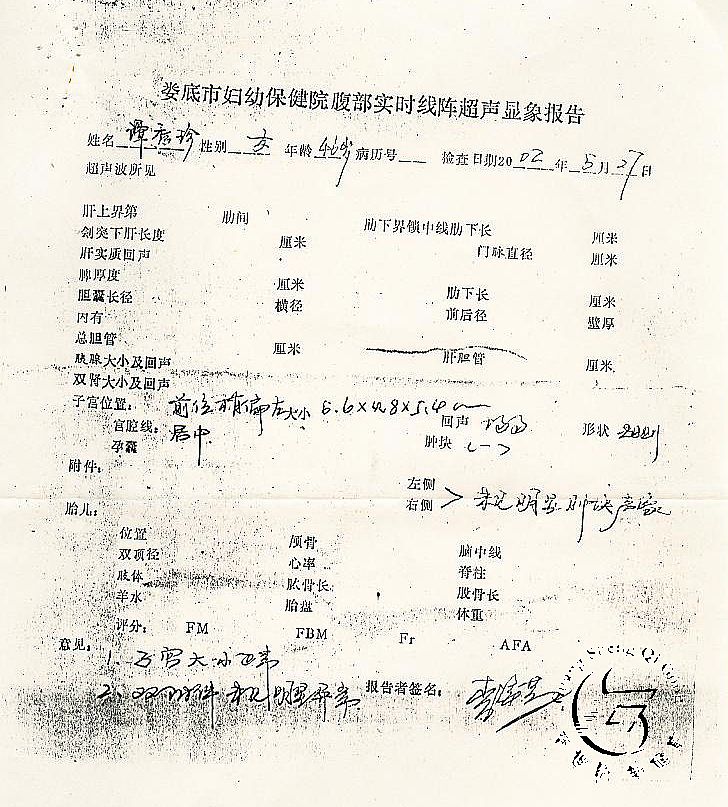 娄底市妇幼保健院腹部实时线阵超声显象报告
姓名 谭 珍 性别 女 年龄 46岁 病历号 检查日期2002年5月27日
超声波所见
肝上界第 肋间 肋下界锁中线肋下长 厘米
剑突下肝长度 厘米 门脉直径 厘米
肝实质回声
脾厚度 厘米 肋下长 厘米
胆囊长径 横径 前后径 壁厚
内有
总胆管 厘米 肝胆管 厘米
胰腺大小及回声
双肾大小及回声
子宫位置: 前位 偏左 大小 5.4cm 回声 均匀 形状 规则
宫腔线: 居中 肿块 (-)
孕囊
附件: 左侧
右侧 > 未见明显
胎儿:
位置 颅骨 脑中线
双顶径 心率 脊柱
肢体 肱骨长 股骨长
羊水 胎盘 体重
评分: FM FBM Fr AFA
意见: 1. 子宫大小正常
2. 双附件未见明显异常
报告者签名: